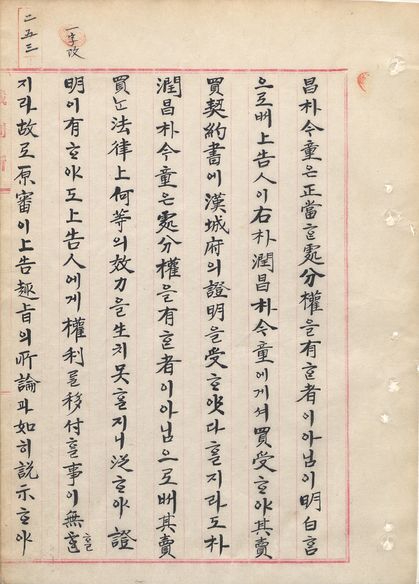 二五三
一字改
昌朴今童은正當ᄒᆞᆫ處分權을有ᄒᆞᆫ者이아님이明白홈
으로ᄡᅥ上告人이右朴潤昌朴今童에게셔買受ᄒᆞ야其賣
買契約書에漢城府의證明을受ᄒᆞ얏다ᄒᆞᆯ지라도朴
潤昌朴今童은處分權을有ᄒᆞᆫ者이아님으로ᄡᅥ其賣
買ᄂᆞᆫ法律上何等의效力을生치못ᄒᆞᆯ지니從ᄒᆞ야證
明이有ᄒᆞ야도上告人에게權利를移付ᄒᆞᆯ事이無ᄒᆞᆯ
지라故로原審이上告趣旨의所論과如히說示ᄒᆞ야